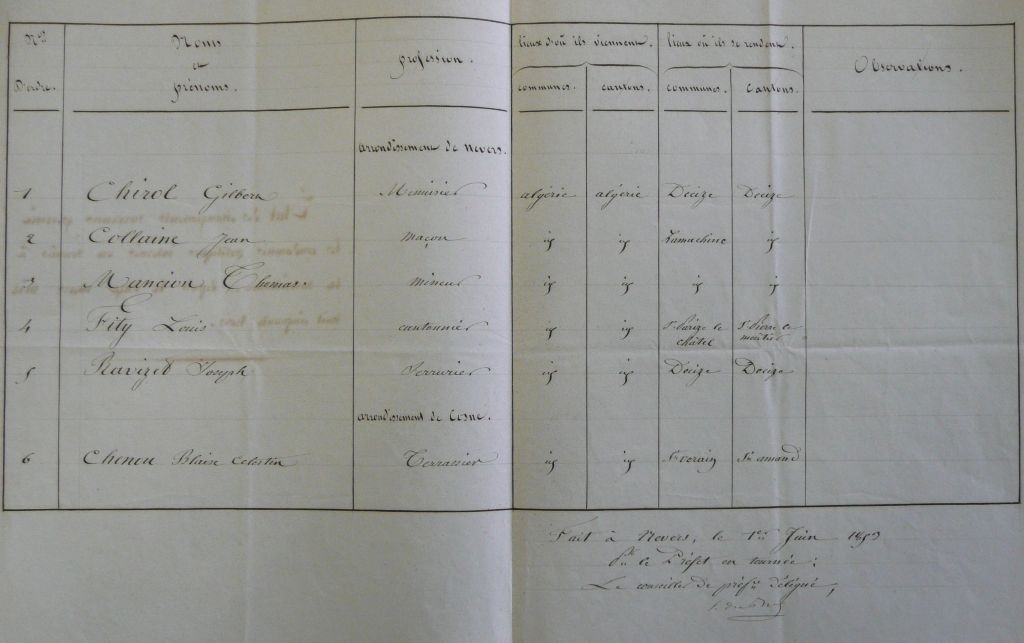 Nos D'ordre. Noms et prénoms. profession. lieux d'où ils viennent. lieux où ils se rendent. Observations.
communes. cantons. communes. Cantons.
arrondissement de Nevers.
1 Chirol Gilbert Menuisier algérie algérie Decize Decize
2 Collaine Jean maçon id id Lamachine id
3 Mancion Thomas. mineur id id id id
4 Fity Louis. cantonnier id id St Parize le châtel St Pierre le moutier
5 Ravizet Joseph Serrurier id id Decize Decize
arrondissement de Cosne.
6 Chenou Blaise Celestin Terrassier id id St verain St amand
Fait à Nevers, le 1er Juin 1853
Pr le Préfet en tournée:
Le conseiller de préfre délégué,